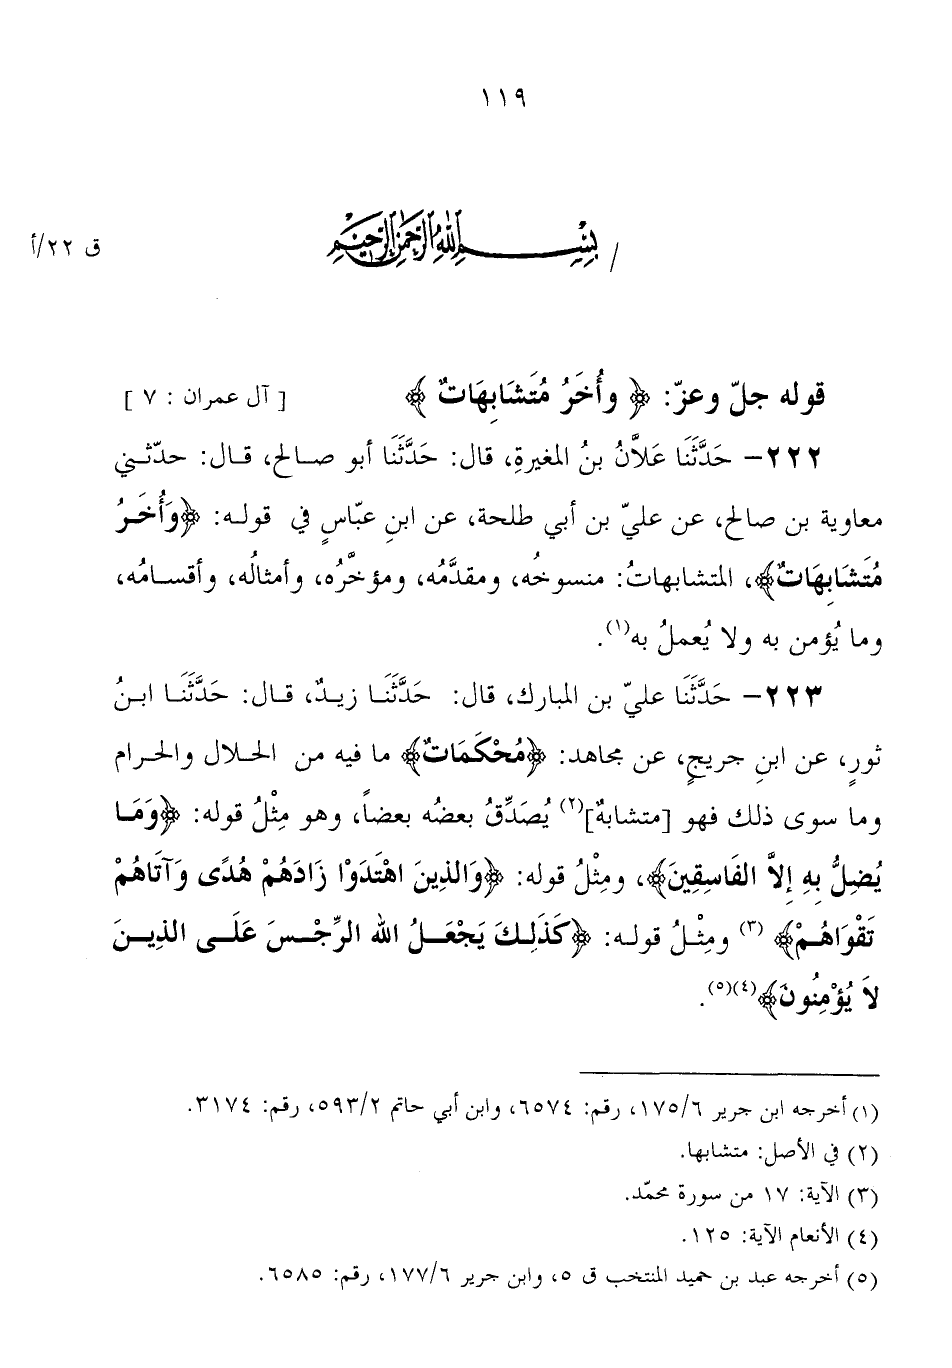 ١١٩
/ بِسْمِ اللهِ الرَّحْمَنِ الرَّحِيمِ ق ٢٢/أ
قوله جلّ وعزّ: ﴿ وأُخَرُ مُتَشَابِهَاتٌ ﴾ [ آل عمران : ٧ ]
٢٢٢- حَدَّثَنَا عَلاَّنُ بنُ المغيرةِ، قال: حَدَّثَنَا أبو صالح، قال: حدّثني
معاوية بن صالح، عن عليّ بن أبي طلحة، عن ابنِ عبّاسٍ في قوله: ﴿وَأُخَرُ
مُتَشَابِهَاتٌ﴾، المتشابهاتُ: منسوخُه، ومقدَّمُه، ومؤخَّرُه، وأمثالُه، وأقسامُه،
وما يُؤمن به ولا يُعملُ به(١).
٢٢٣- حَدَّثَنَا عليّ بن المبارك، قال: حَدَّثَنَا زيدٌ، قال: حَدَّثَنَا ابنُ
ثورٍ، عن ابنِ جريجٍ، عن مجاهد: ﴿مُحْكَمَاتٌ﴾ ما فيه من الحلال والحرام
وما سوى ذلك فهو [متشابهٌ](٢) يُصَدِّقُ بعضُه بعضاً، وهو مِثْلُ قوله: ﴿وَمَا
يُضِلُّ بِهِ إِلاَّ الفَاسِقِينَ﴾، ومِثْلُ قوله: ﴿وَالذِينَ اهْتَدَوْا زَادَهُمْ هُدًى وَآتَاهُمْ
تَقْوَاهُمْ﴾ (٣) ومِثْلُ قوله: ﴿كَذَلِكَ يَجْعَلُ الله الرِّجْسَ عَلَى الذِينَ
لاَ يُؤْمِنُونَ﴾(٤)(٥).
(١) أخرجه ابن جرير ١٧٥/٦، رقم: ٦٥٧٤، وابن أبي حاتم ٥٩٣/٢، رقم: ٣١٧٤.
(٢) في الأصل: متشابها.
(٣) الآية: ١٧ من سورة محمّد.
(٤) الأنعام الآية: ١٢٥.
(٥) أخرجه عبد بن حميد المنتخب ق ٥، وابن جرير ١٧٧/٦، رقم: ٦٥٨٥.